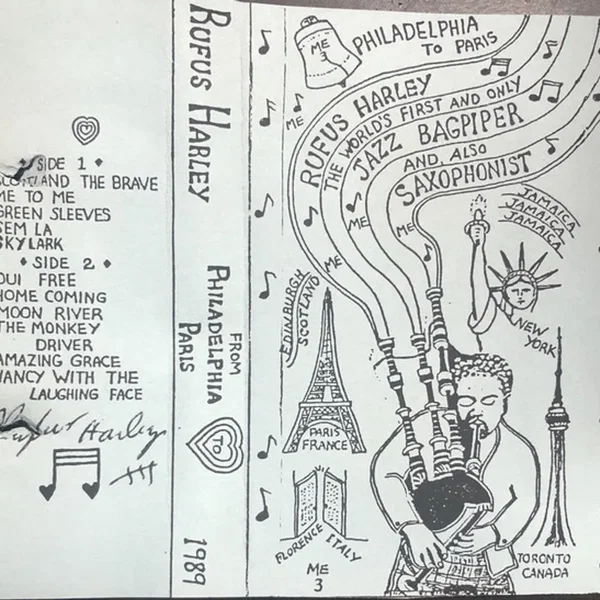 SIDE 1
SCOTLAND THE BRAVE
ME TO ME
GREEN SLEEVES
SEM LA
SKYLARK
SIDE 2
OUI FREE
HOME COMING
MOON RIVER
THE MONKEY
DRIVER
AMAZING GRACE
NANCY WITH THE
LAUGHING FACE
Rufus Harley
RUFUS HARLEY
FROM
PHILADELPHIA
TO
PARIS
1989
ME
3
PHILADELPHIA
TO PARIS
RUFUS HARLEY
THE WORLD'S FIRST AND ONLY
JAZZ BAGPIPER
AND, ALSO
SAXOPHONIST
ME
ME
ME
ME
JAMAICA
JAMAICA
JAMAICA
EDINBURGH
SCOTLAND
NEW YORK
PARIS
FRANCE
FLORENCE ITALY
TORONTO
CANADA
ME
3